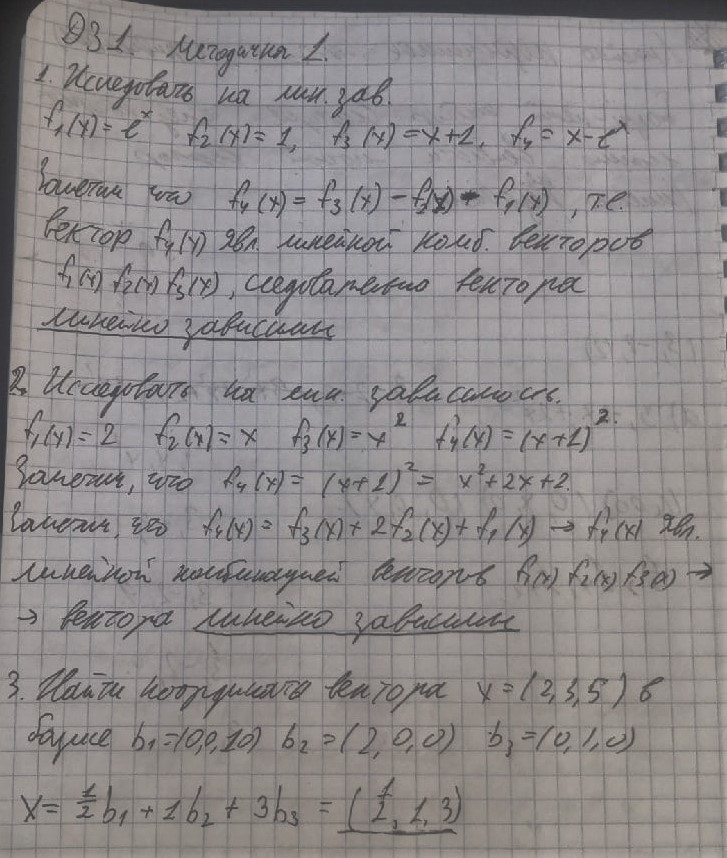 ДЗ 1. Методичка 1.
1. Исследовать на лин. зав.
f₁(x) = eˣ f₂(x) = 1, f₃(x) = x+1, f₄ = x-eˣ
Заметим что f₄(x) = f₃(x) - f₂(x) - f₁(x), т.е.
вектор f₄(x) явл. линейной комб. векторов
f₁(x) f₂(x) f₃(x), следовательно вектора
линейно зависимы
2. Исследовать на лин. зависимость.
f₁(x) = 2 f₂(x) = x f₃(x) = x² f₄(x) = (x+1)².
Заметим, что f₄(x) = (x+1)² = x²+2x+2.
Заметим, что f₄(x) = f₃(x) + 2f₂(x) + f₁(x) → f₄(x) явл.
линейной комбинацией векторов f₁(x) f₂(x) f₃(x) →
→ вектора линейно зависимы
3. Найти координата вектора x = (2,3,5) в
базисе b₁ = (0,0,10) b₂ = (2,0,0) b₃ = (0,1,0)
x = 1/2 b₁ + 1b₂ + 3b₃ = (1/2, 1, 3)